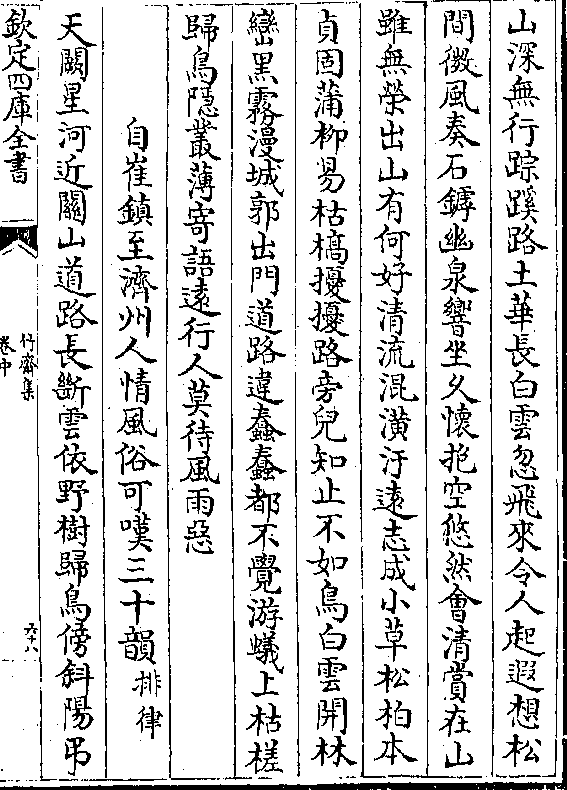 山深無行踪蹊路土華長白雲忽飛來令人起遐想松
間微風奏石罅幽泉響坐久懷抱空悠然會清賞在山
雖無榮出山有何好清流混潢汙遠志成小草松柏本
貞固蒲柳易枯槁擾擾路旁兒知止不如鳥白雲開林
巒黑霧漫城郭出門道路違蠢蠢都不覺游蟻上枯槎
歸鳥隱叢薄寄語遠行人莫待風雨惡
自崔鎮至濟州人情風俗可嘆三十韻排律
天闕星河近關山道路長斷雲依野樹歸鳥傍斜陽弔
欽定四庫全書
竹齋集
卷中
五十八